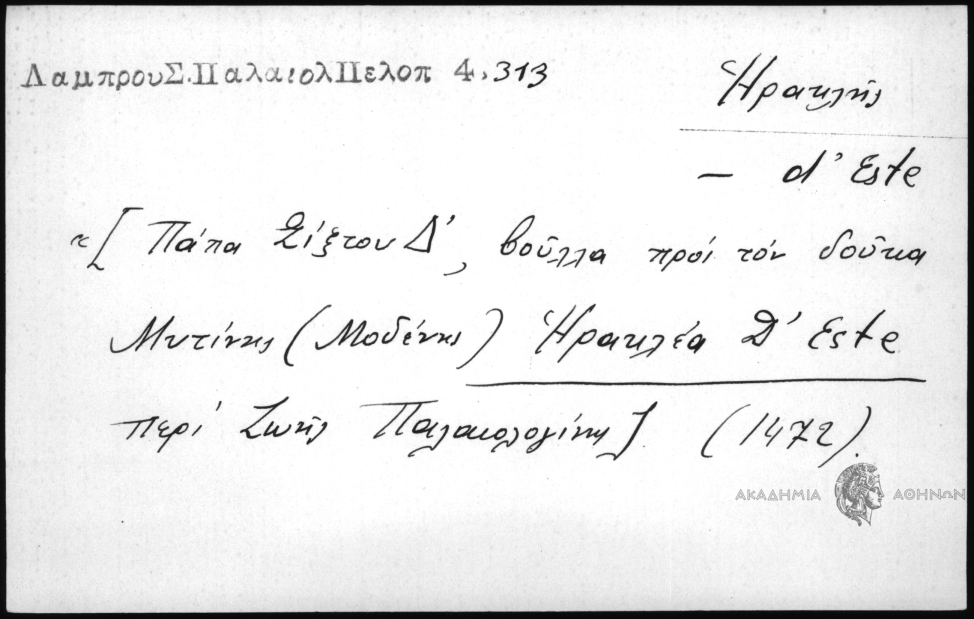 ΛαμπρουΣ.ΠαλαιολΠελοπ 4.313
Ἡρακλῆς
— d' Este
"[ Πάπα Σίξτου Δ', βοῦλλα πρός τόν δοῦκα
Μυτίνης (Μοδένης) Ἡρακλέα D' Este
περί Ζωῆς Παλαιολογίνης]. (1472).
ΑΚΑΔΗΜΙΑ ΑΘΗΝΩΝ